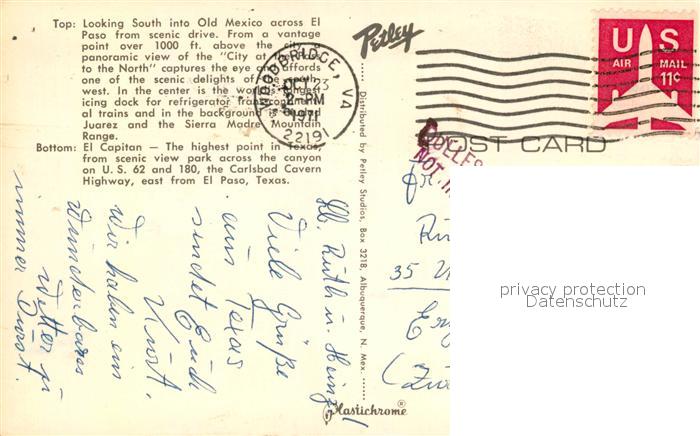 Top: Looking South into Old Mexico across El
Paso from scenic drive. From a vantage
point over 1000 ft. above the city a
panoramic view of the "City at the Pass
to the North" captures the eye and affords
one of the scenic delights of the south-
west. In the center is the world's largest
icing dock for refrigerator transcontinental
trains and in the background is Ciudad
Juarez and the Sierra Madre Mountain
Range.
Bottom: El Capitan — The highest point in Texas,
from scenic view park across the canyon
on U. S. 62 and 180, the Carlsbad Cavern
Highway, east from El Paso, Texas.
Petley
Distributed by Petley Studios, Box 3218, Albuquerque, N. Mex.
Plastichrome®
WOODBRIDGE, VA
OCT 23
PM
1971
22191
US
AIR MAIL
11c
POST CARD
Lb. Ruth u. Heinz!
Viele Grüße
aus Texas
sendet Euch
Kurt.
Wir haben ein
wunderbares
Wetter u
immer Durst.
35
privacy protection
Datenschutz